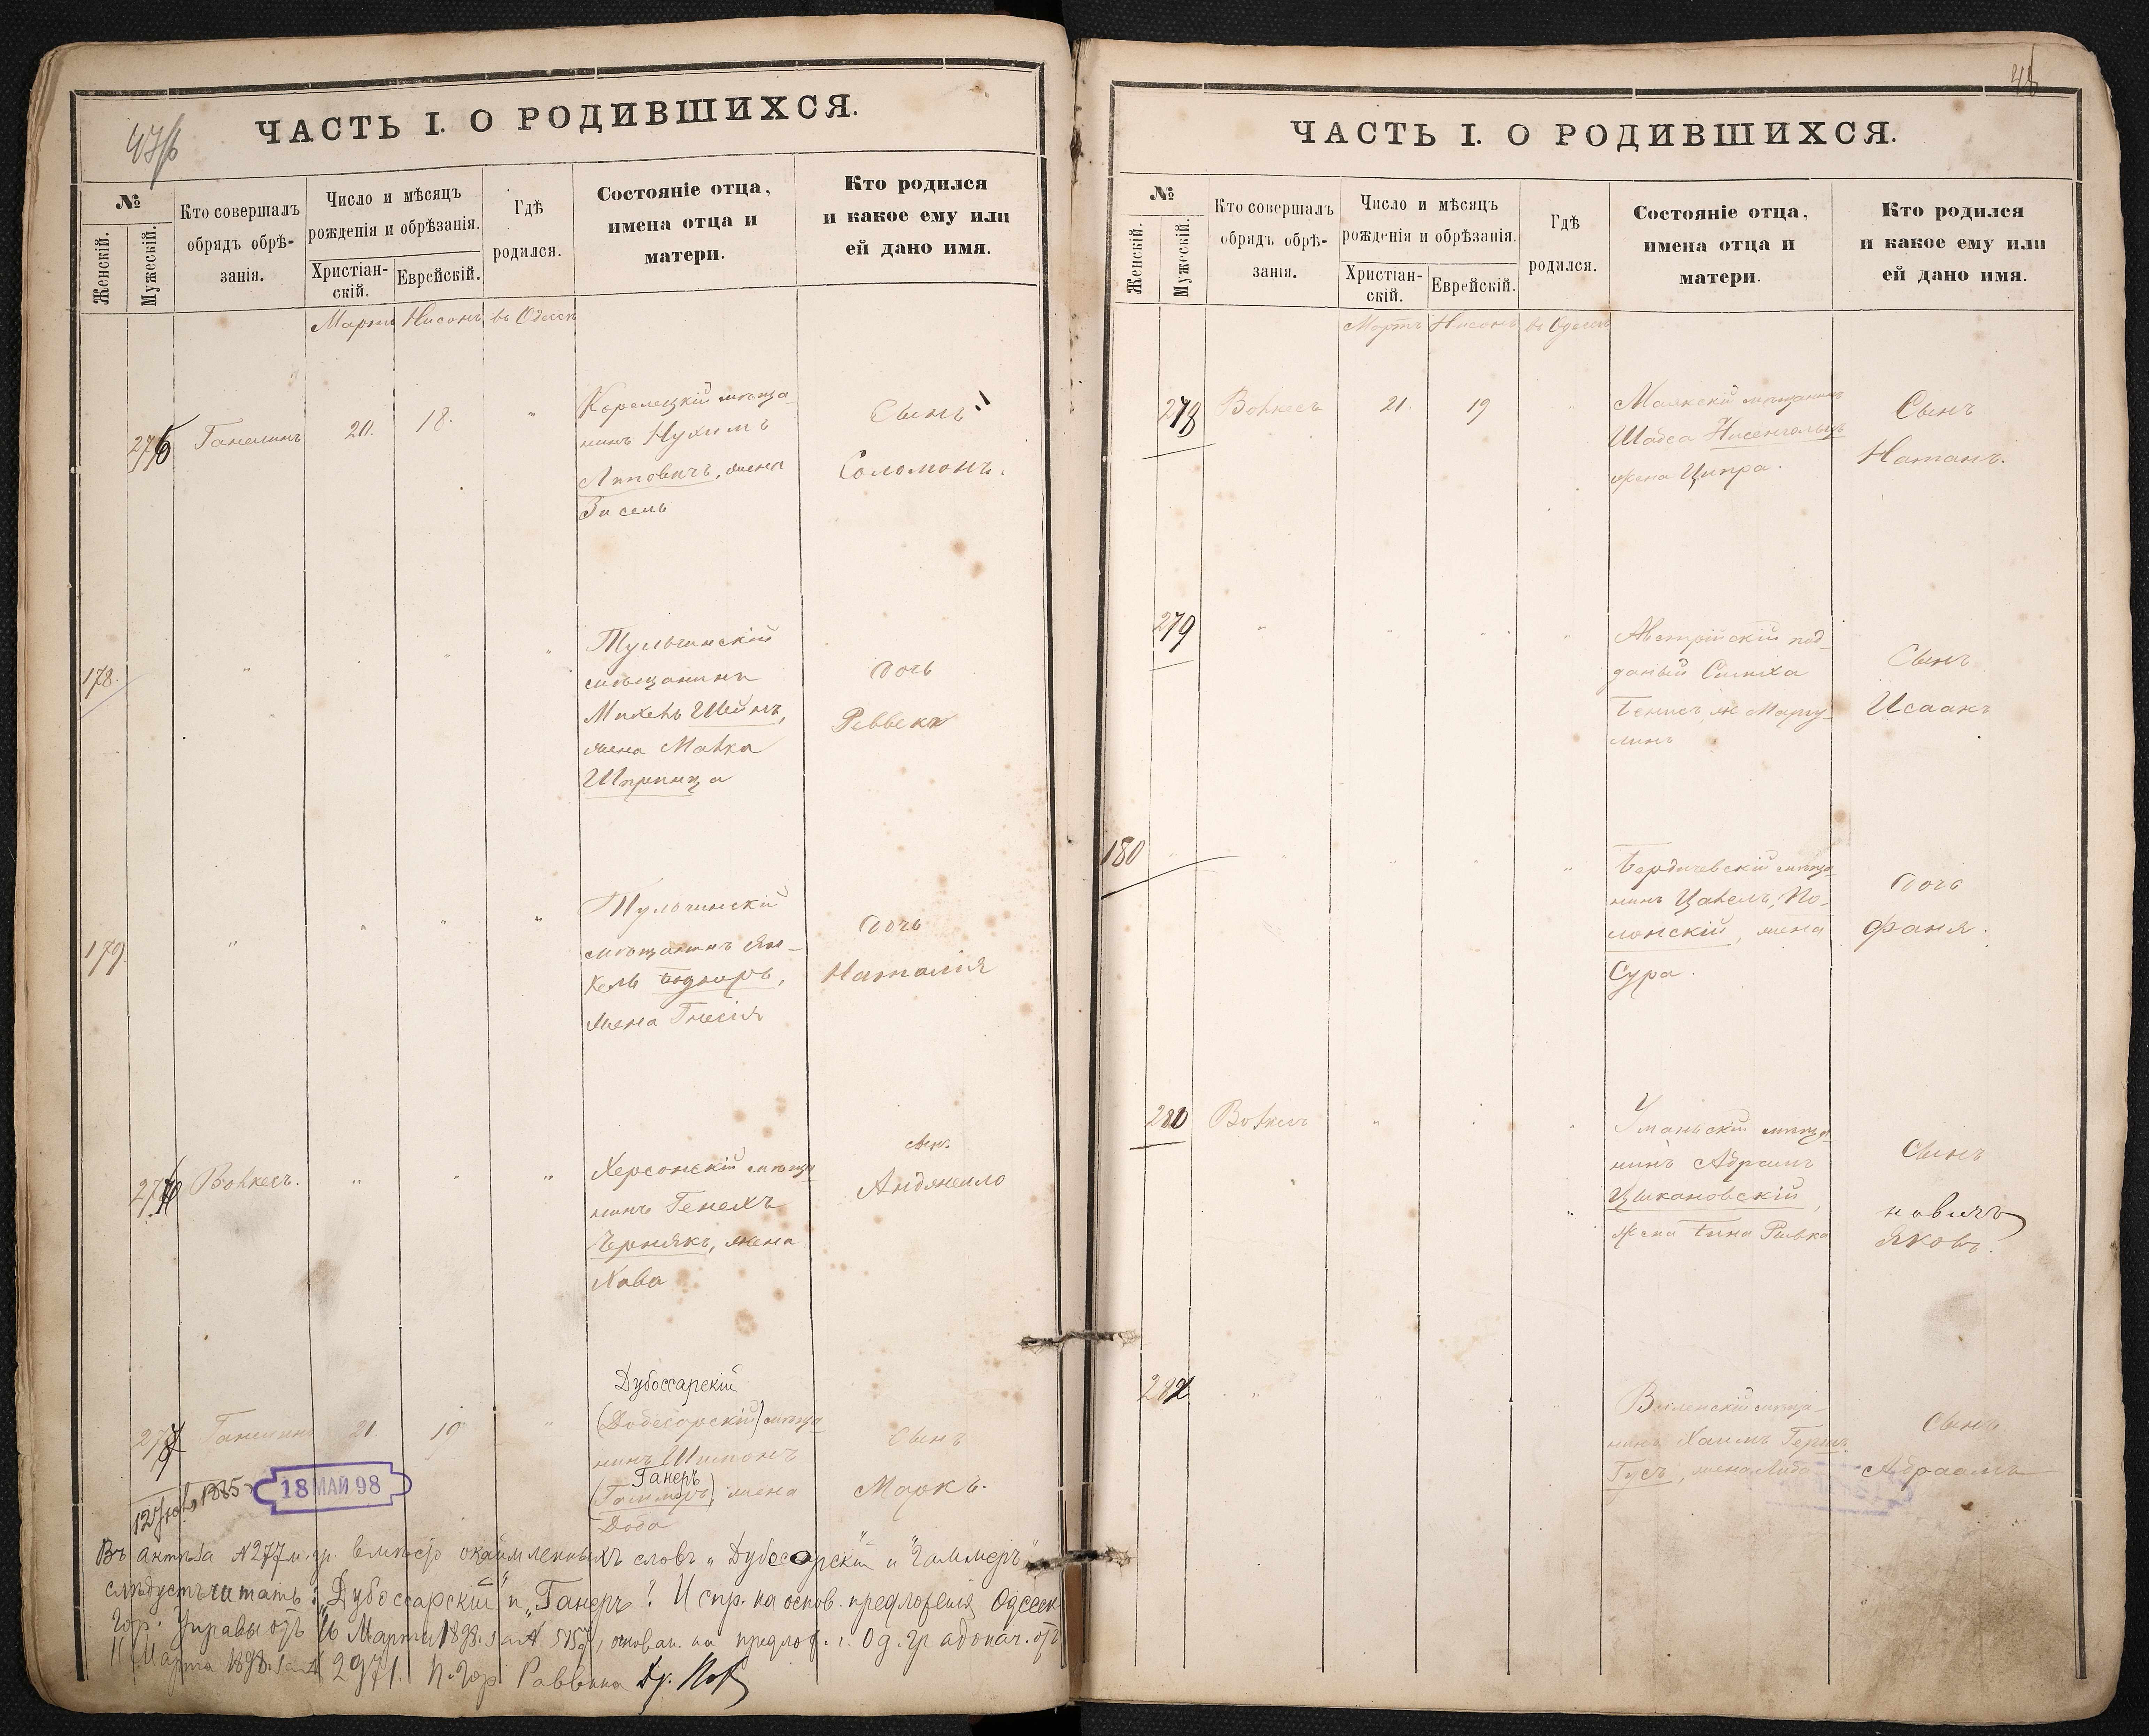 47/б
ЧАСТЬ I. О РОДИВШИХСЯ.
№
Женскій.
Мужескій.
Кто совершалъ
обрядъ обрѣ-
занія.
Число и мѣсяцъ
рожденія и обрѣзанія.
Христіан-
скій.
Еврейскій.
Гдѣ
родился.
Состояніе отца,
имена отца и
матери.
Кто родился
и какое ему или
ей дано имя.
Мартъ Нисонъ въ Одессѣ
Ганелинъ 20. 18. "
Корелецкій мѣща-
нинъ Нухимъ
Липовичъ, жена
Зисель
Сынъ
Соломонъ.
178.
Тульчинскій
мѣщанинъ
Михель Шейнъ,
жена Малка
Шпринца
дочь
Ревекка
179
Тульчинскій
мѣщанинъ Ян-
кель Боднаръ,
жена Гнесія
дочь
Наталія
Волкесъ. " " "
Херсонскій мѣща
нинъ Генехъ
Чернякъ, жена
Хава
сын.
277 Ганелинъ 21. 19 "
Дубоссарскій
(Добесарскій) мѣща
нинъ Шимонъ
Ганеръ
(Гаммеръ) жена
Доба
Сынъ
Маркъ.
1885
18 МАЙ 98
Въ актѣ за № 277 м. гр. вмѣсто окаймленныхъ словъ „Дубесарскій" и „Гаммеръ"
слѣдуетъ читать: „Дубоссарскій" и „Ганеръ". Испр. на основ. предложенія Одесск.
Гор. Управы отъ 16 Марта 1898 за № 515, основан. на предлож. г. Од. Градонач. отъ
11 Марта 1898 за № 2971. П. Гор. Раввина Др.
48
ЧАСТЬ I. О РОДИВШИХСЯ.
№
Женскій.
Мужескій.
Кто совершалъ
обрядъ обрѣ-
занія.
Число и мѣсяцъ
рожденія и обрѣзанія.
Христіан-
скій.
Еврейскій.
Гдѣ
родился.
Состояніе отца,
имена отца и
матери.
Кто родился
и какое ему или
ей дано имя.
Мартъ Нисонъ въ Одессѣ
278 Волкесъ 21. 19 "
Маякскій мѣщанинъ
Шабса Нисенгольцъ
жена Ципра.
Сынъ
Натанъ.
279
Австрійскій под-
даный Симха
ж Маргу-
лисъ
Сынъ
Исаакъ
180
Бердичевскій мѣща-
нинъ Цалель По-
лонскій, жена
Сура.
дочь
Фаня.
280 Волкесъ
Уманьскій мѣща
нинъ Абрамъ
Цыкановскій,
жена Бина Ривка
Сынъ
Яковъ.
Виленскій мѣща-
нинъ Хаимъ Гершъ
Гусъ, жена Либа
Сынъ
Абраамъ